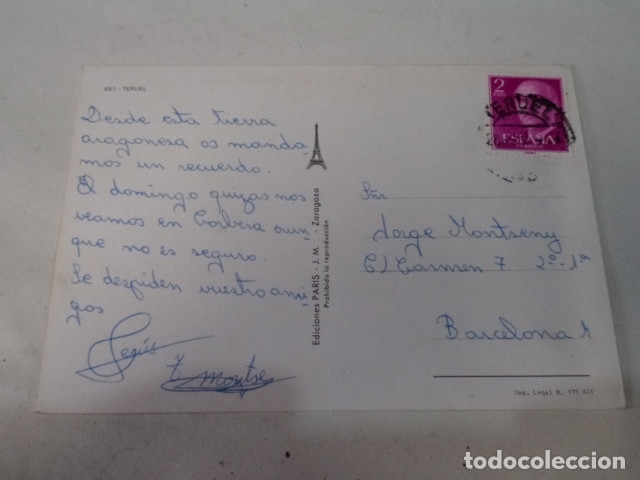 693 - TERUEL
Desde esta tierra
aragonesa os manda-
mos un recuerdo.
El domingo quizas nos
veamos en Corbera aun-
que no es seguro.
Se despiden vuestro ami-
gos
Jesús
y Montse
Ediciones PARIS - J. M. - Zaragoza
Prohibida la reproducción
2
PTAS
ESPAÑA
CORREOS
Jorge Montseny
C) Carmen 7 2º-1ª
Barcelona 1
Dep. Legal B.
todocoleccion.net